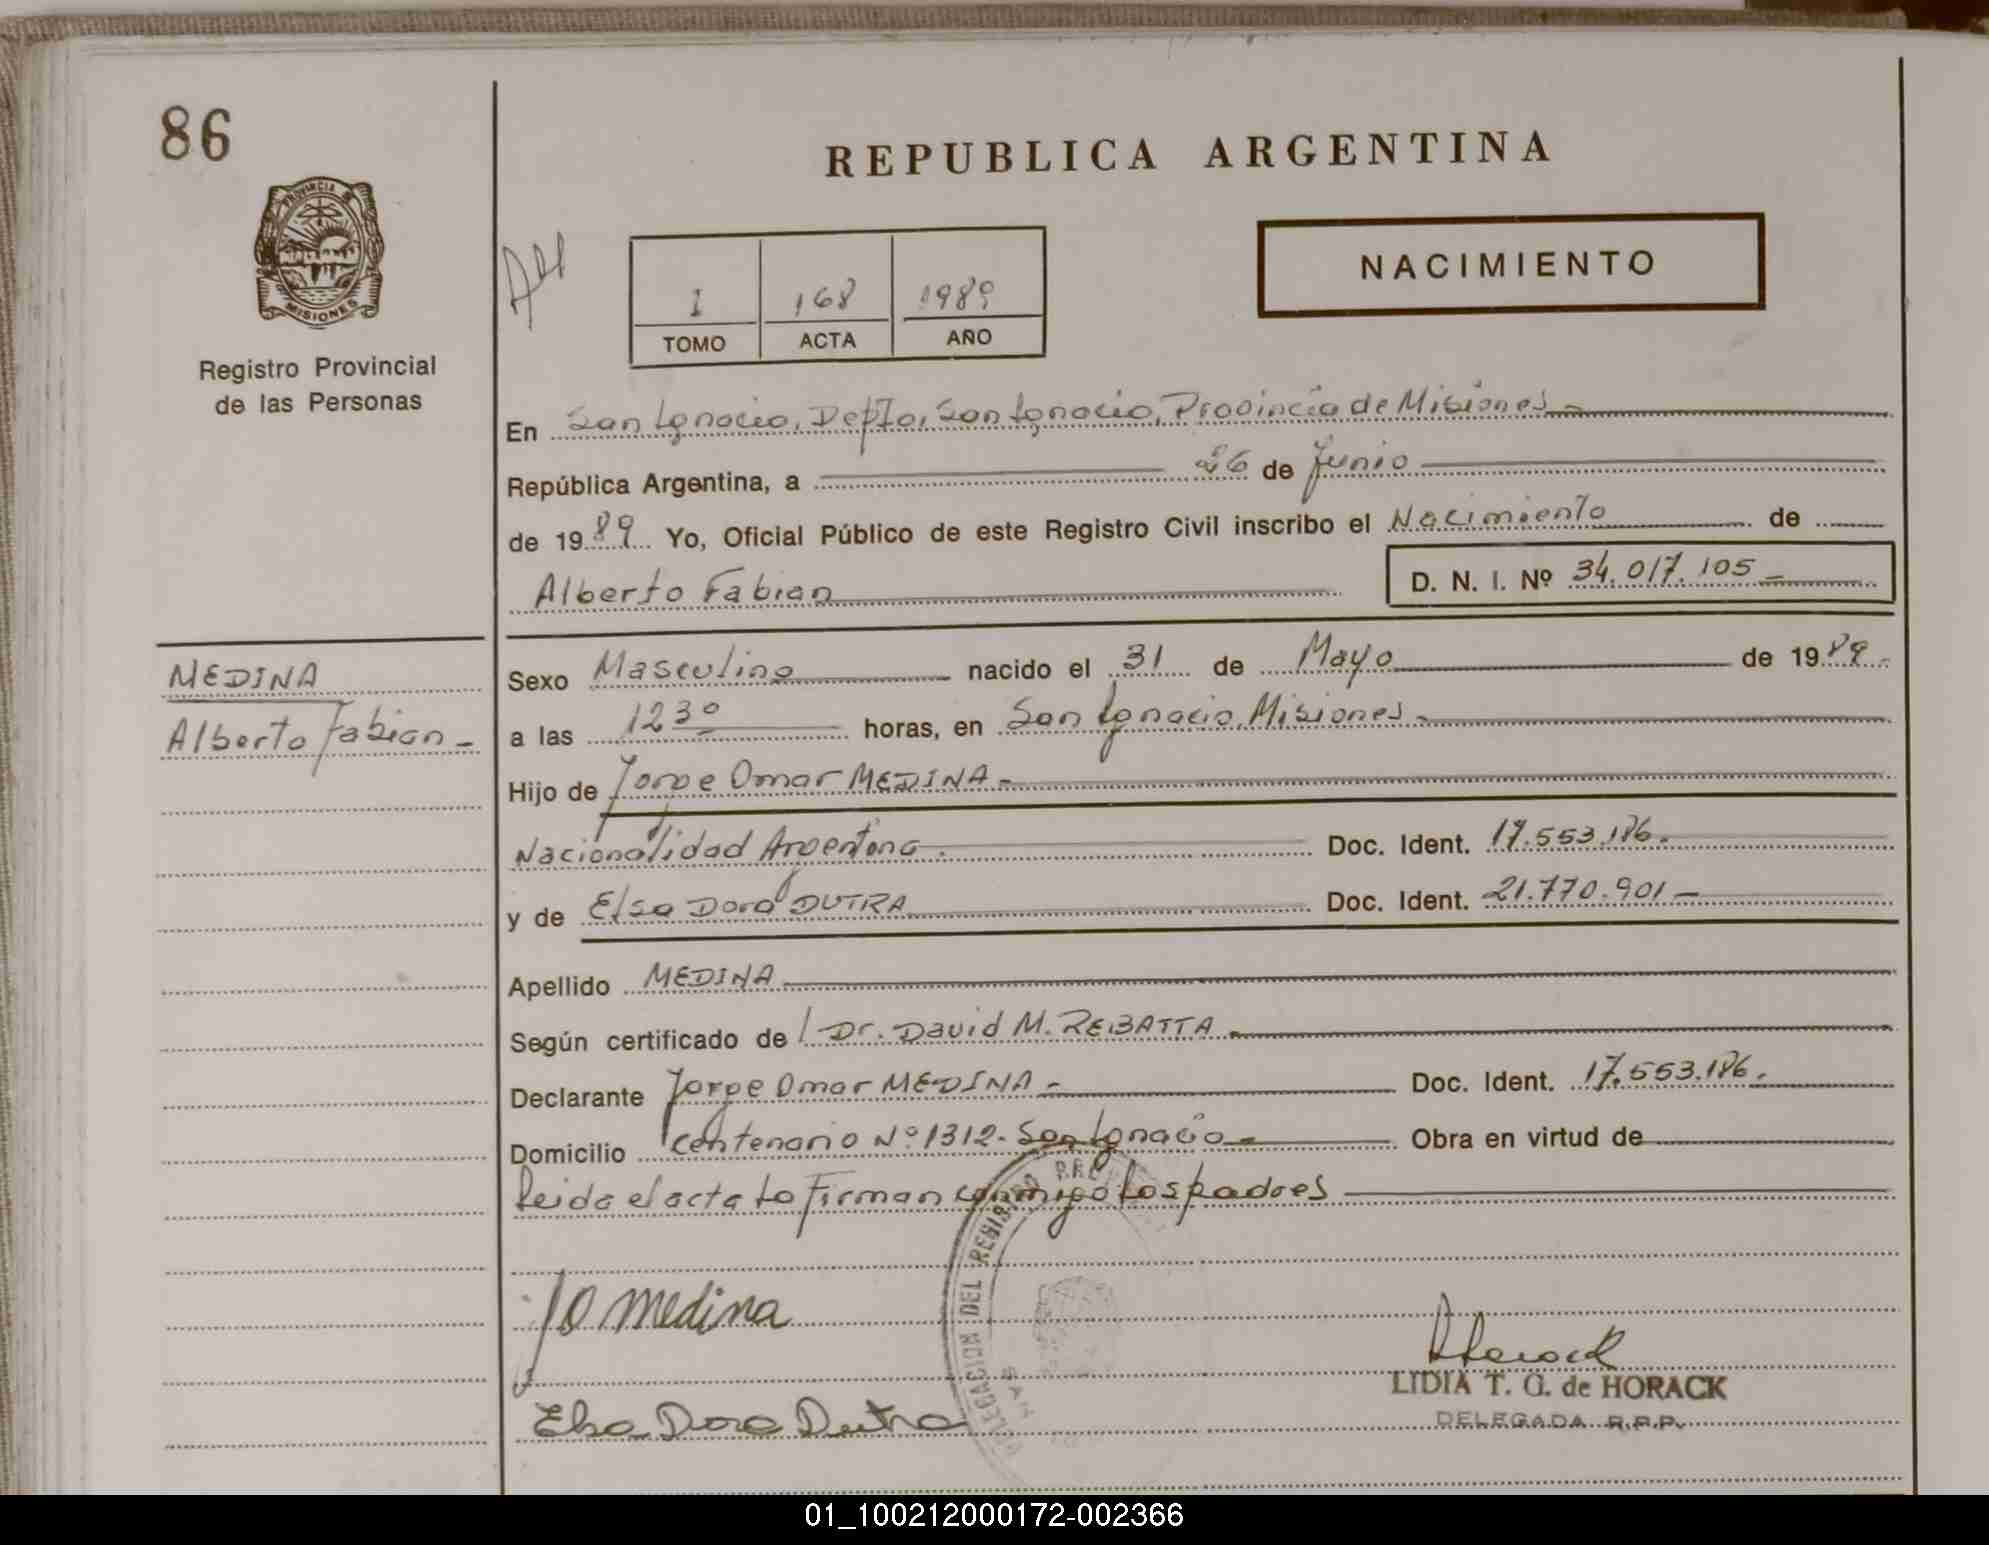 86
REPUBLICA ARGENTINA
PROVINCIA DE
MISIONES
NACIMIENTO
I 168 1989
TOMO ACTA AÑO
Registro Provincial
de las Personas
En San Ignacio, Depto, San Ignacio, Provincia de Misiones
República Argentina, a 26 de Junio
de 1989 Yo, Oficial Público de este Registro Civil inscribo el Nacimiento de
Alberto Fabian D. N. I. Nº 34.017.105
MEDINA
Alberto Fabian
Sexo Masculino nacido el 31 de Mayo de 1989
a las 12 30 horas, en San Ignacio, Misiones
Hijo de Jorge Omar MEDINA
Nacionalidad Argentina. Doc. Ident. 17.553.186.
y de Elsa Dora DUTRA Doc. Ident. 21.770.901
Apellido MEDINA
Según certificado de Dr. David M. REBATTA
Declarante Jorge Omar MEDINA Doc. Ident. 17.553.186.
Domicilio Centenario Nº 1312- San Ignacio Obra en virtud de
Leida el acta la Firman conmigo los padres
DELEGACION DEL REGISTRO
SAN
JO Medina
LIDIA T. G. de HORACK
Elsa Dora Dutra
DELEGADA R.P.P.
01_100212000172-002366